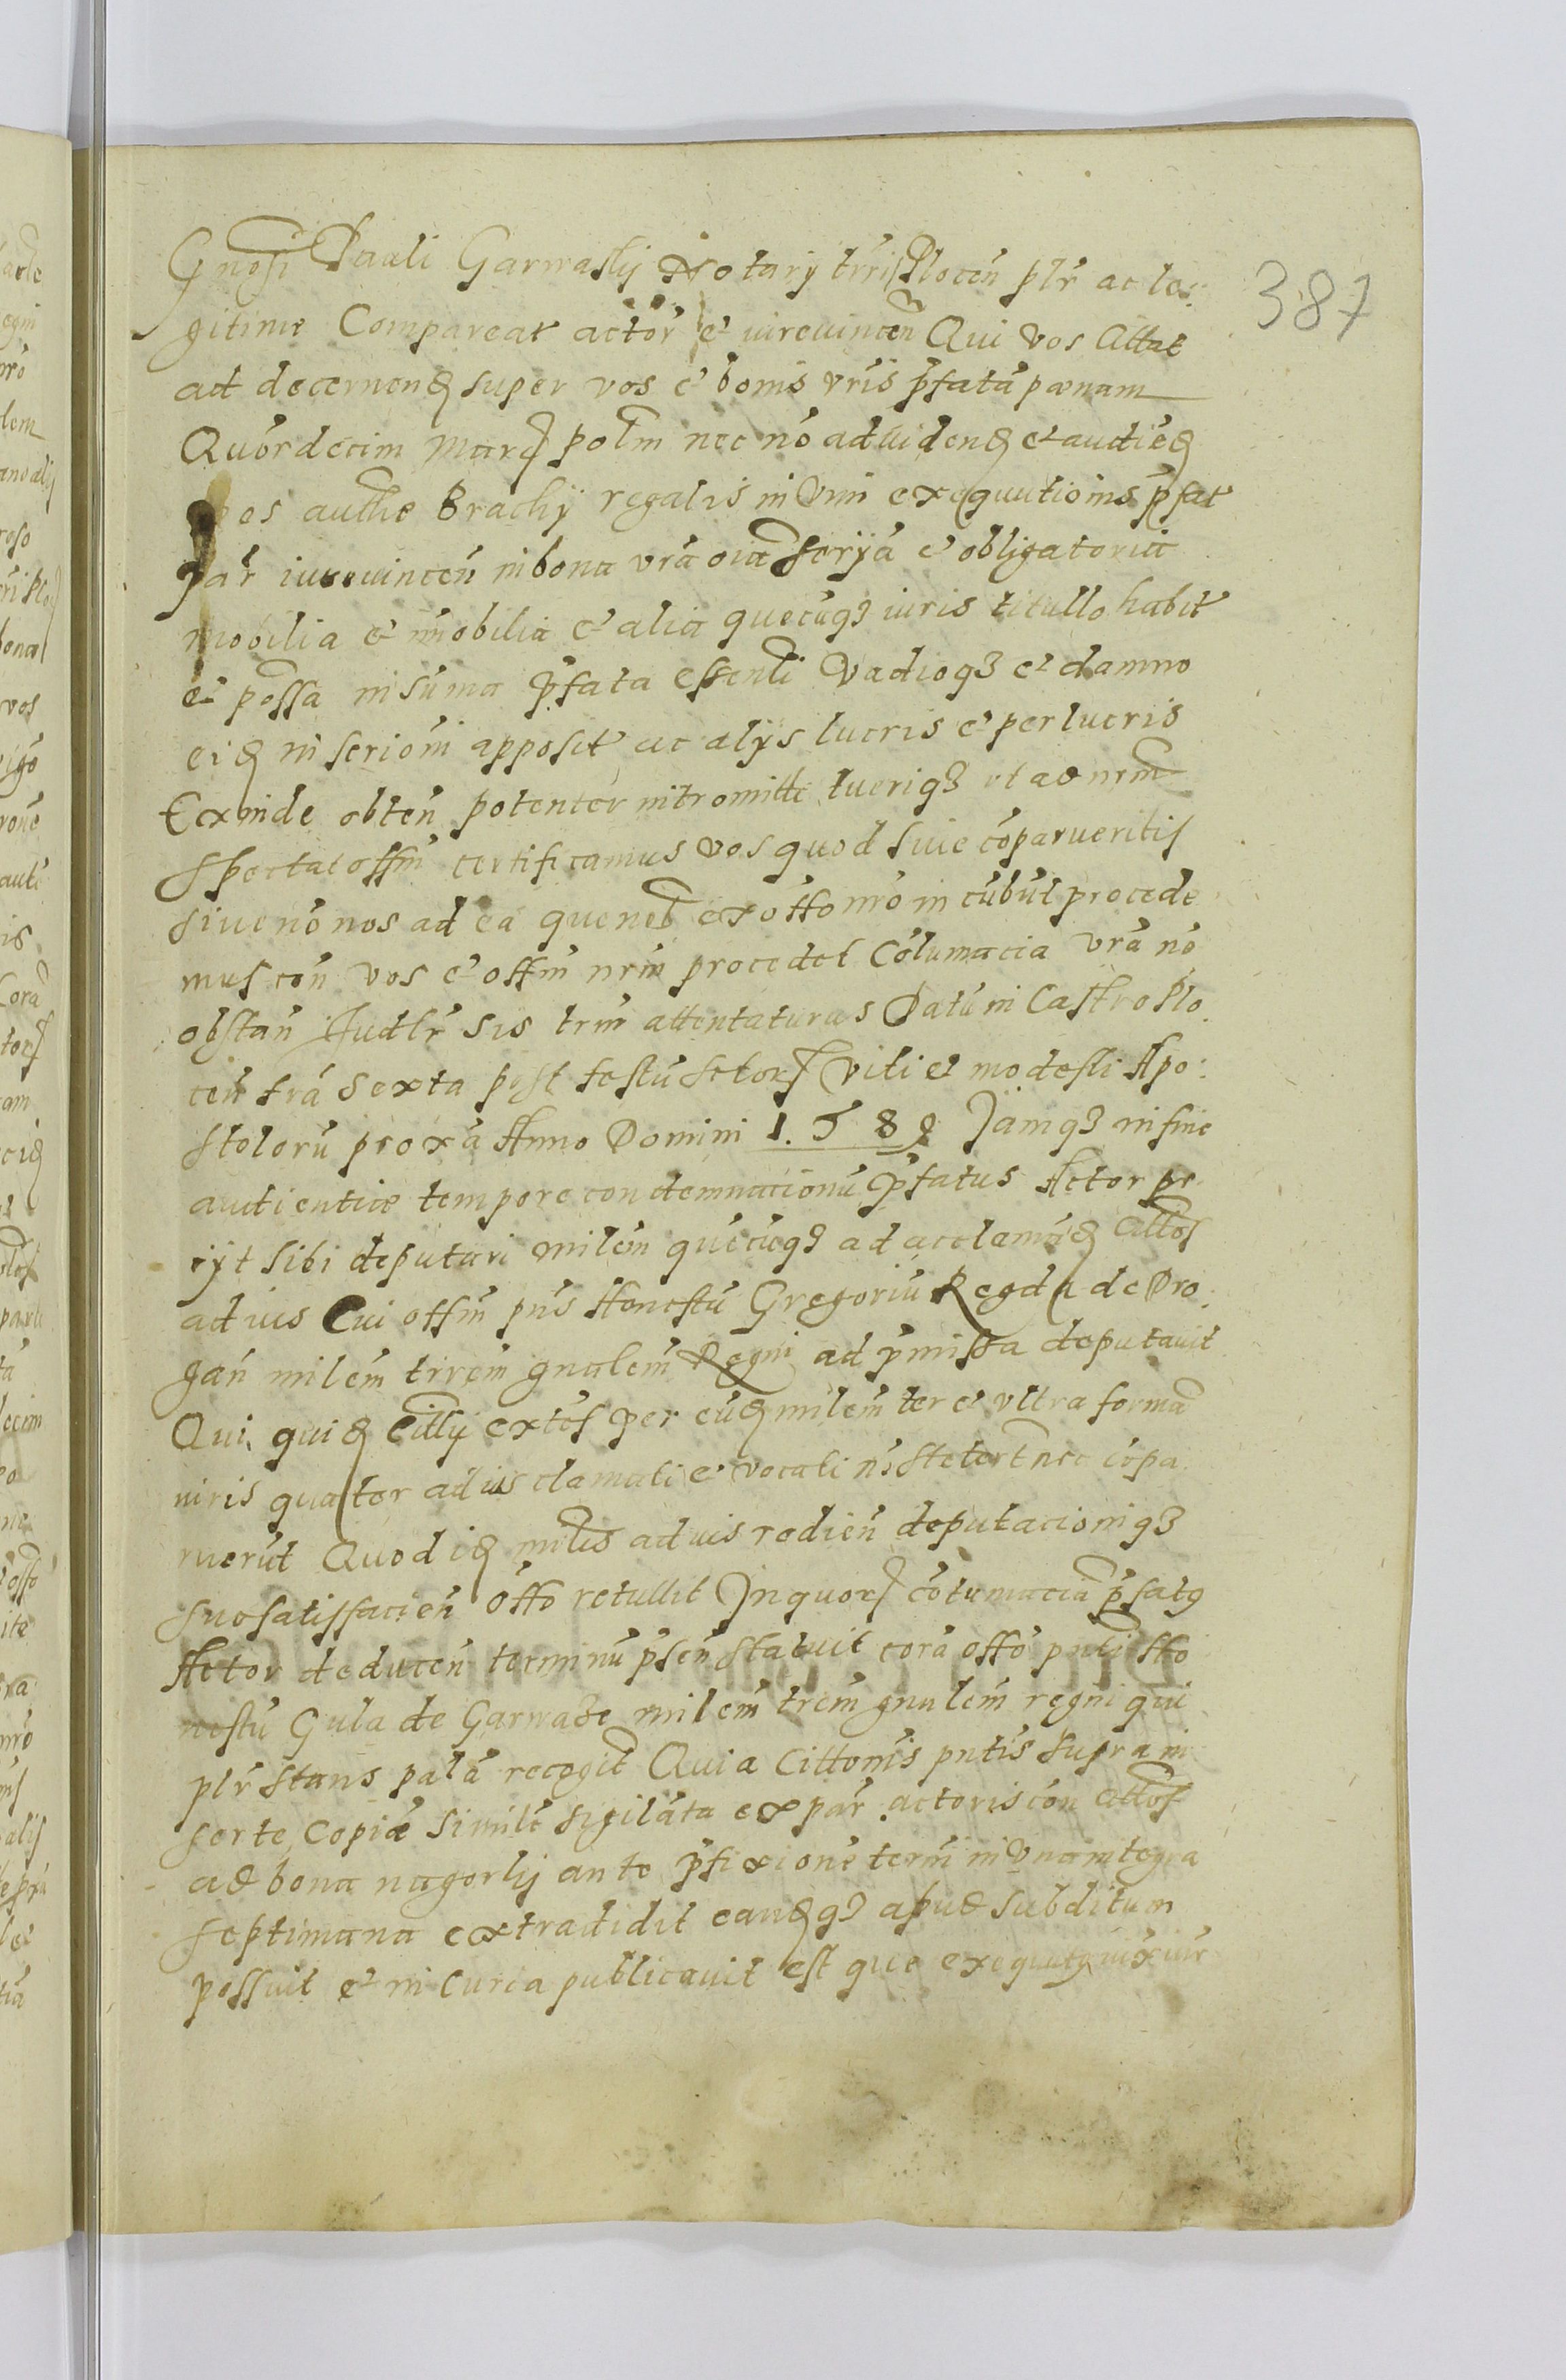 387
Gnosi Pauli Garwasky Notarÿ trris Plocen̄ plr̄ ac le:
gitime Compareat actor et iurevincen̄ Qui vos Cittat
ad decernend super vos et bonis vr̄is p̄fatā pœnam
Quordecim Mar polm̄ nec nō advidend et audiēd
auth̄e Brachÿ regalis in Vim exequutionis p̄fat
par iurevincen̄ in bona vr̄a oīa et obligatoria
mobilia et im̄obilia et alia quecūq3 iuris titullo habit
et possa in sūma p̄fata Essenli Vadioq3 et damno
eid in scriōm apposit ac alÿs lucris et perlucris
Exinde obten̄ potenter intromitti tueriq3 et ad nrm̄
Spectat offm̄ certificamus vos quod sive cōparueritis
sive nō nos ad ea que ex offo nr̄o in cūbūt procede
mus con̄ vos et offm̄ nrm̄ procedet Cōtumacia vr̄a nō
obstan̄ Judlr̄ sis trm̄ attentaturas Datū in Castro Plo
cen̄ fr̄a Sexta post festū sctor Viti et modesti Apo:
stolorū proxa Anno Domini 158 Jamq3 in fine
audientiæ tempore condemnacionū p̄fatus Actor pe
iÿt sibi deputari milem̄ quēcūq3 ad acclamād Cittos
ad ius Cui offm̄ pn̄s Honestū Gregoriū Regda de Dro:
gan̄ milem̄ trrem̄ gnalem̄ Regni ad p̄missa deputavit
Qui quid Citty extes per eūd milem̄ ter et ultra formā
iuris quater ad ius clamati et vocati nō stetert nec cōpa
ruerūt Quod id milēs ad ius redien̄ deputacioniq3
suæ satisfacien̄ offo retullit In quor cōtumaciā p̄fatq
Actor deducen̄ terminū p̄sen̄ statuit corā offo pnti Ho
nestū Gula de Garwaze milem̄ trem̄ gnalem̄ regni qui
plr̄ stans palā recogit Quia Cittonis pntis supra in
serte Copiæ simile sigilata ex par actoris con̄ Cittos
ad bona nagorky ante p̄fixione term̄ in Vna integra
septimana extradidit eandq3 apud subditum
possuit et in Curia publicavit est que